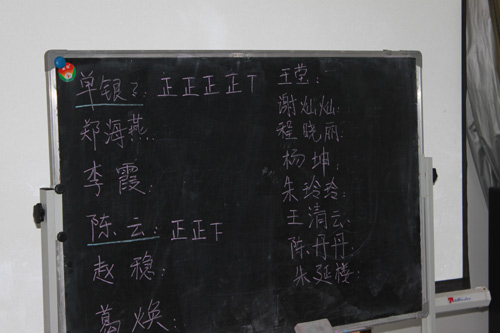 单银?: 正正正正丅
郑海燕:
李霞:
陈云: 正正下
赵稳:
葛焕:
王堂:
谢灿灿:
程晓丽:
杨坤:
朱玲玲:
王清云:
陈丹丹:
朱延楼: